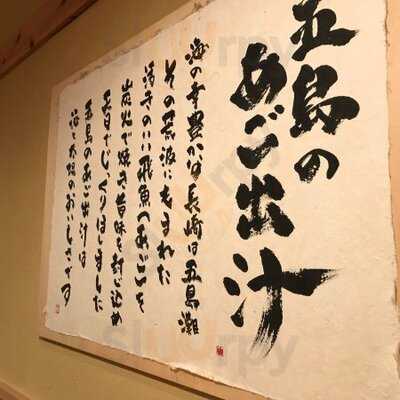 五島の
あご出汁
海の幸豊かな長崎は五島灘
その荒波にもまれた
活きのいい飛魚(あご)を
炭火で焼き旨味を封じ込め
天日でじっくりほしました
五島のあご出汁は
海と太陽のおいしさです